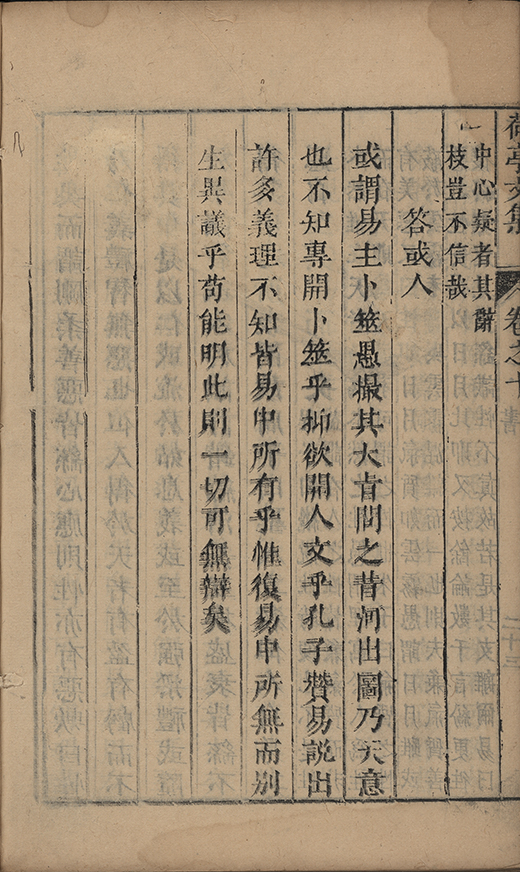 荷亭文集
卷之十 書
二十三
中心疑者其辭
枝豈不信哉
答或人
或謂易主卜筮愚撮其大旨問之昔河出圖乃天意
也不知專開卜筮乎抑欲開人文乎孔子贊易說出
許多義理不知皆易中所有乎惟復易中所無而别
生異議乎苟能明此則一切可無辯矣